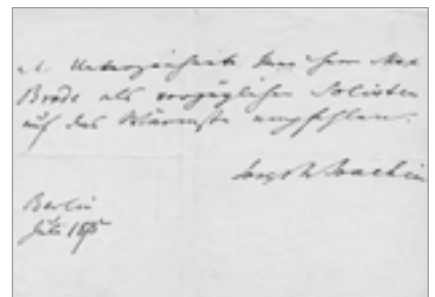 Unterzeichnete kann Herrn Max
Brode als vorzüglichen Solisten
auf das Wärmste empfehlen.
Joseph Joachim
Berlin
Juli